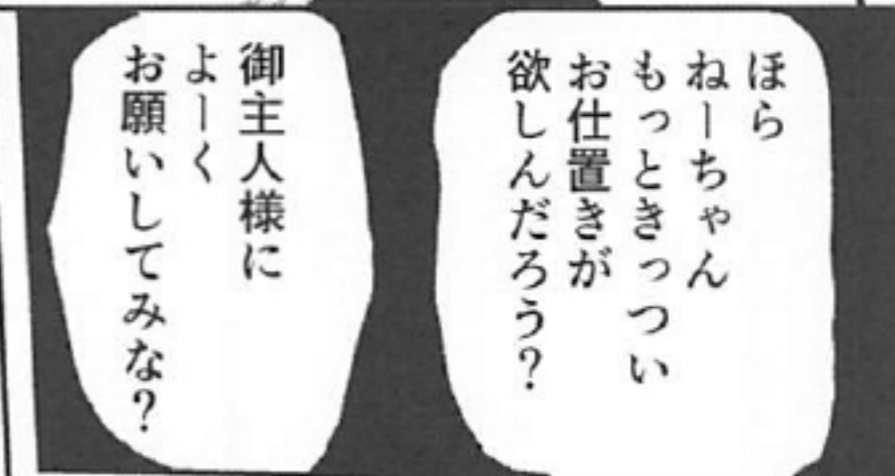 ほら
ねーちゃん
もっときっつい
お仕置きが
欲しんだろう?
御主人様に
よーく
お願いしてみな?